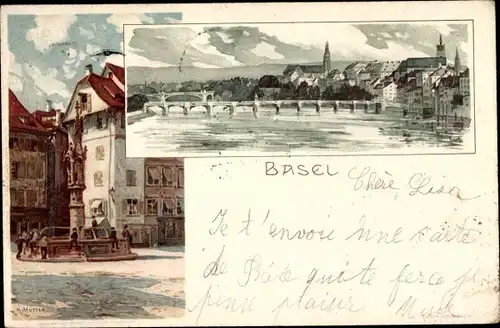 BASEL
Chère Lisa
Je t'envoie une carte
de Bâle qui te fera je
pense plaisir